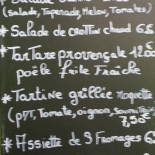 (salade, Tapenade, Melon, Tomates)
* Salade de crottin chaud 6.5
* Tartare provençale 12.00
poêlé frite fraîche
* Tartine grillée roquette
(PDT, Tomate, oignon, 
7,50€
* Assiette de 3 Fromages 6